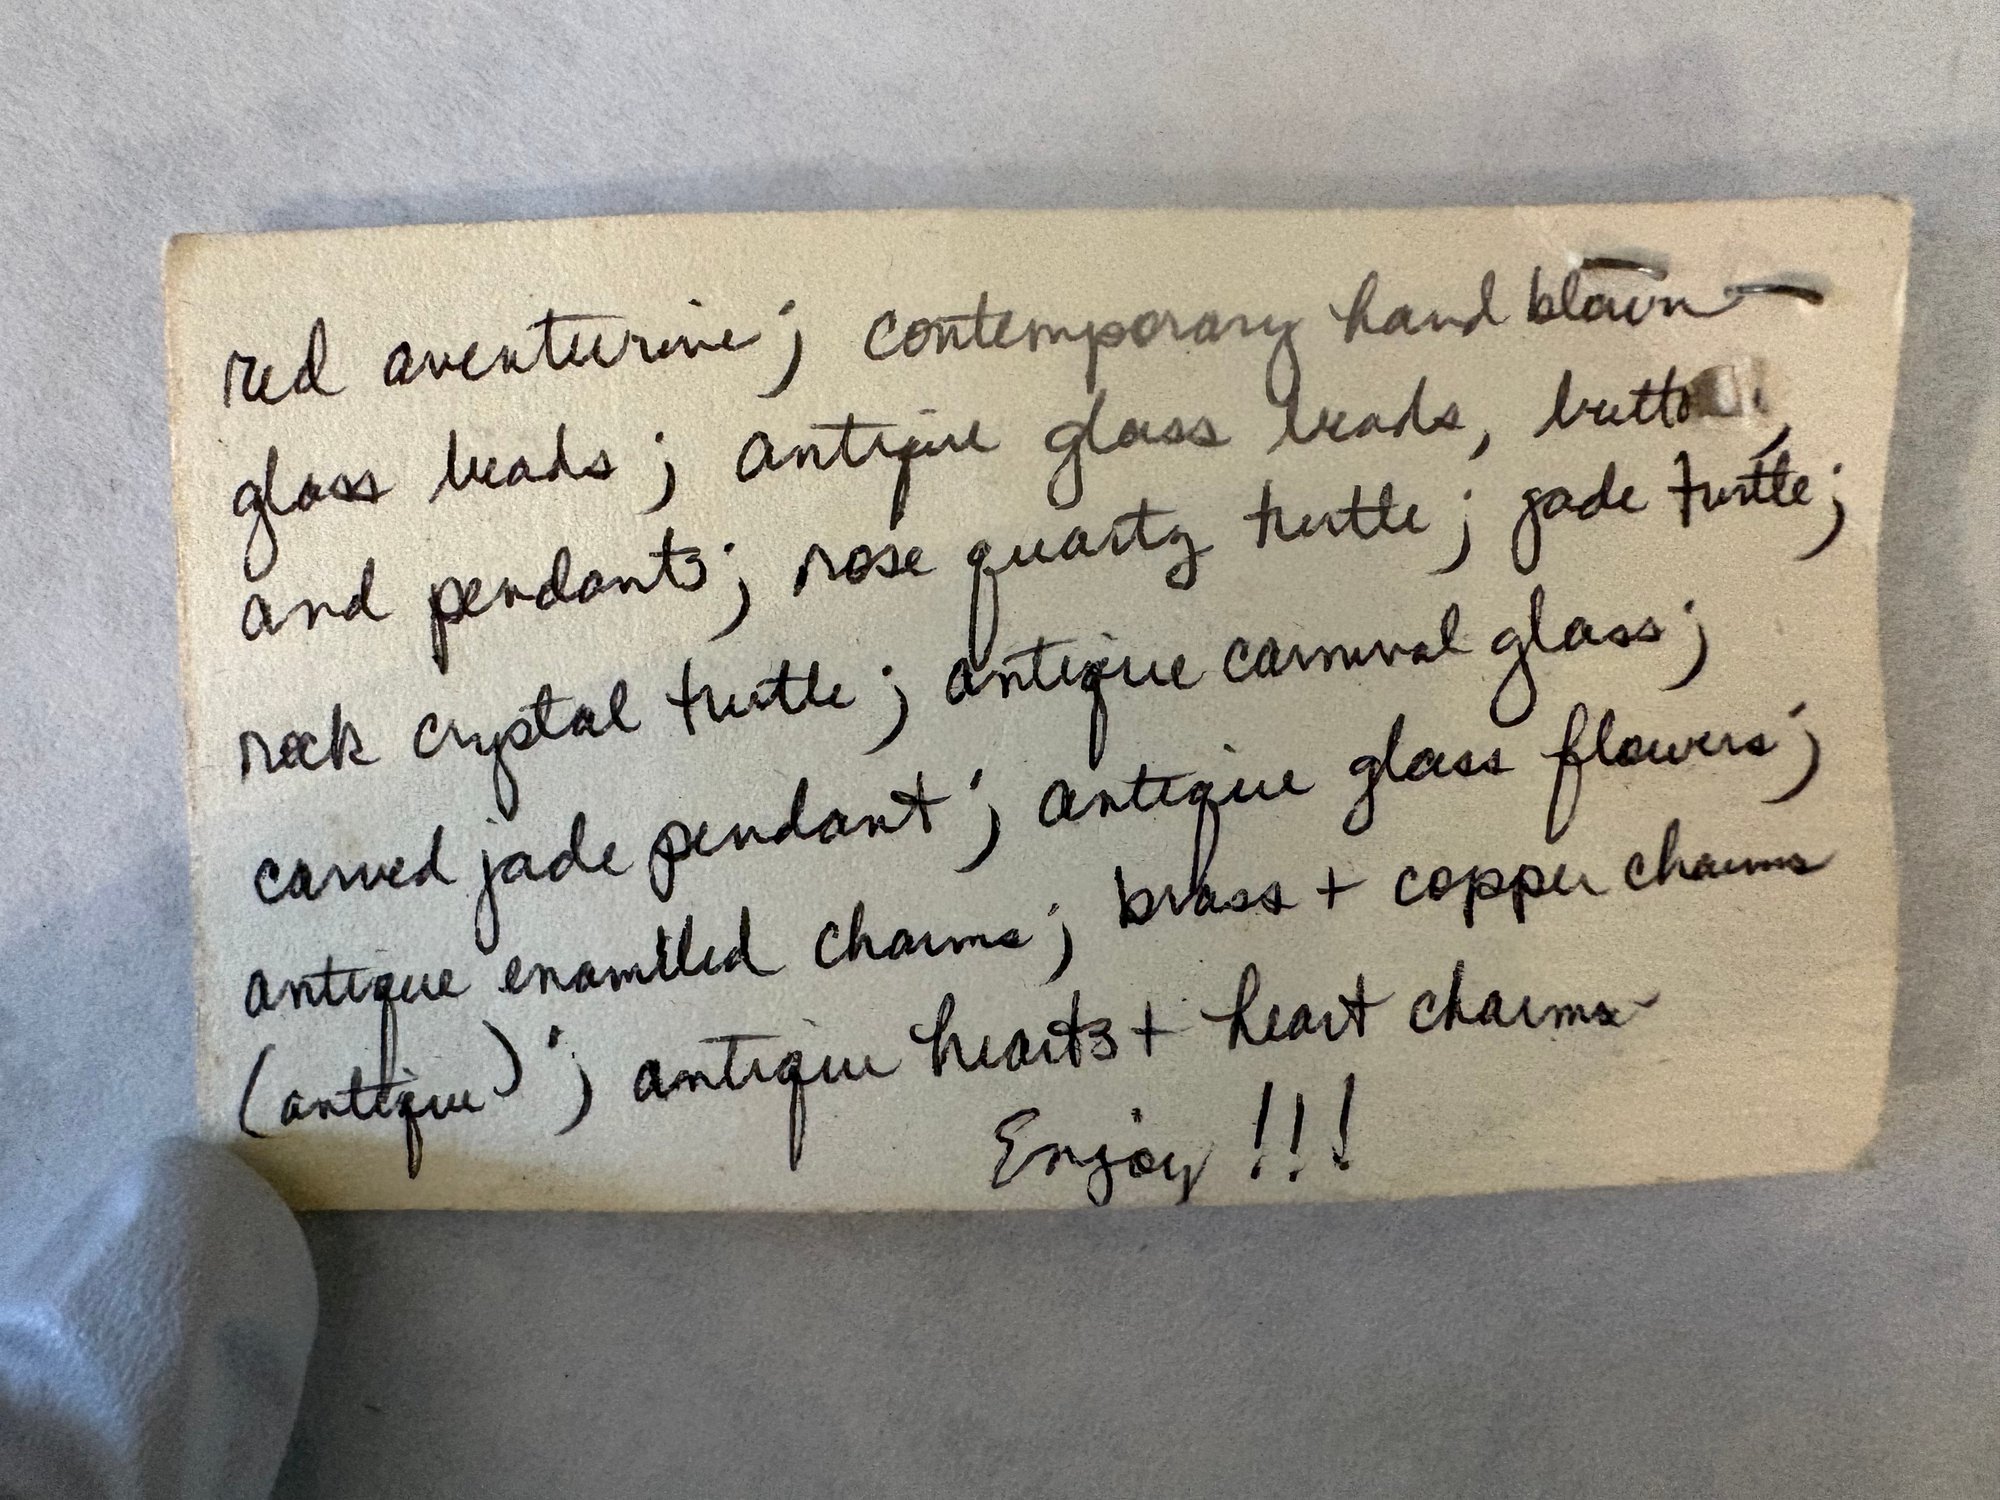 red aventurine; contemporary hand blown
glass beads; antique glass beads, buttons,
and pendants; rose quartz turtle; jade turtle;
rock crystal turtle; antique carnival glass;
carved jade pendant; antique glass flowers;
antique enameled charms; brass + copper charms
(antique); antique hearts + heart charms
Enjoy!!!